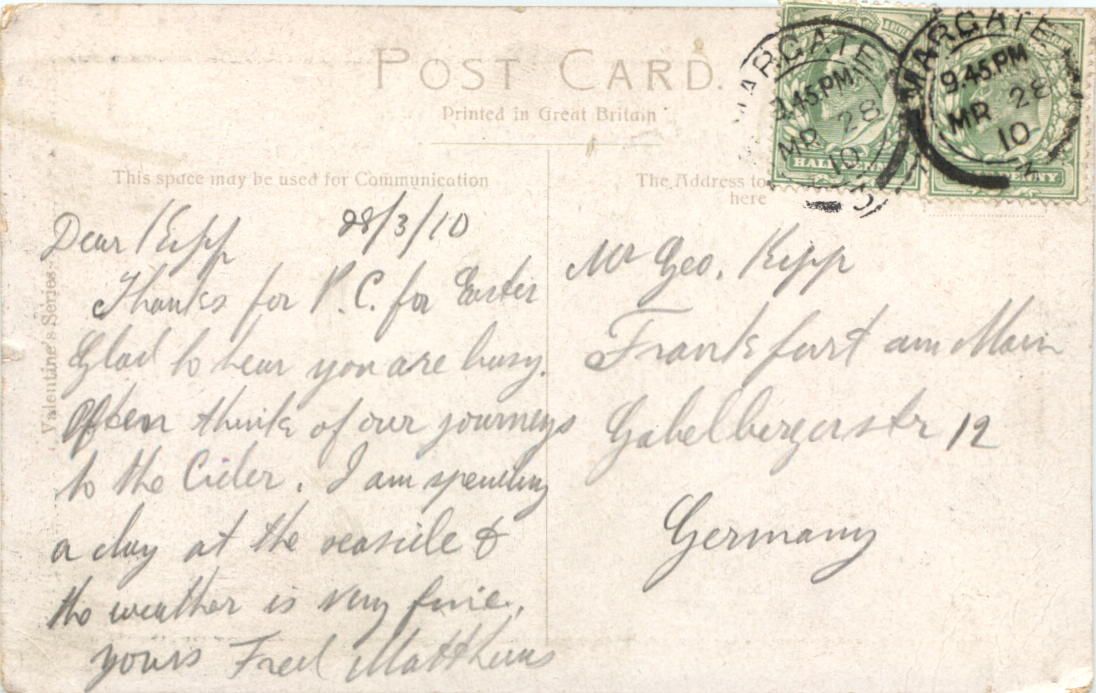 POST CARD.
Printed in Great Britain
This space may be used for Communication
The Address to
here
Valentine's Series.
MARGATE
9.45.PM
MR 28
10
3
HALF PENNY
MARGATE
9.45.PM
MR 28
10
2
PENNY
28/3/10
Dear Kipp
Thanks for P.C. for Easter
Glad to hear you are busy.
Often think of our journeys
to the Cider. I am spending
a day at the seaside &
the weather is very fine.
yours Fred Matthews
Mr Geo. Kipp
Frankfurt am Main
Gabelbergerstr 12
Germany